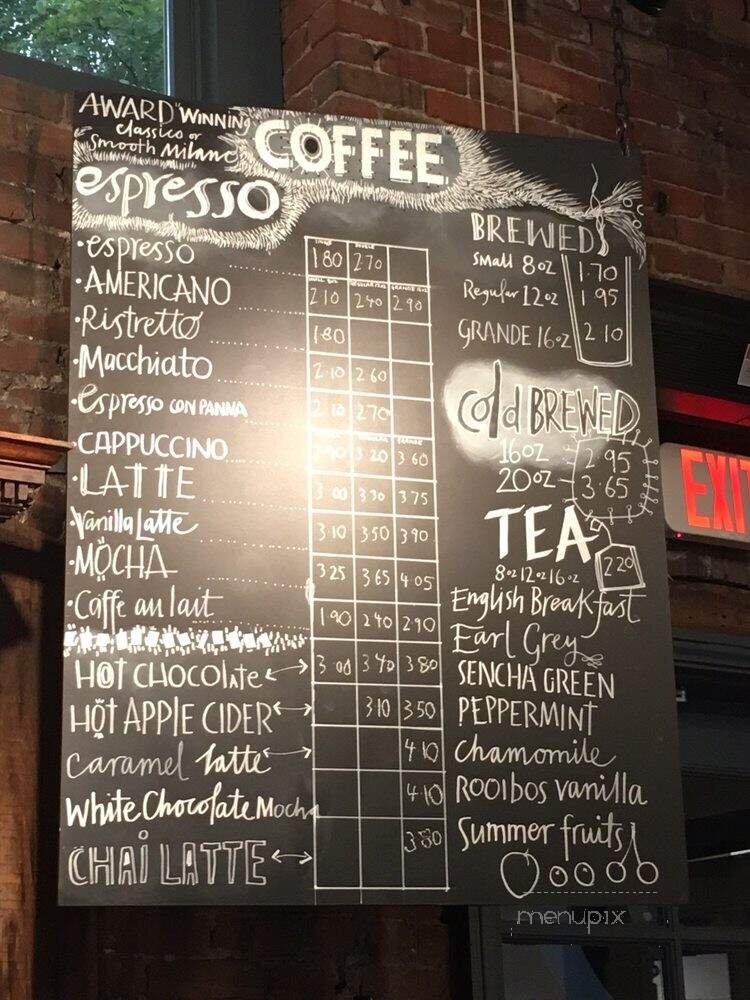 AWARD WINNING
classico or
Smooth Milano
COFFEE
espresso
•espresso 1.80 2.70
•AMERICANO 2.10 2.40 2.90
•Ristretto 1.80
•Macchiato 2.10 2.60
•Espresso CON PANNA 2.10 2.70
•CAPPUCCINO 3.20 3.60
•LATTE 3.00 3.30 3.75
•Vanilla Latte 3.10 3.50 3.90
•MOCHA 3.25 3.65 4.05
•Caffe au lait 1.90 2.40 2.90
HOT CHOCOLATE 3.00 3.40 3.80
HOT APPLE CIDER 3.10 3.50
Caramel Latte 4.10
White Chocolate Mocha 4.10
CHAI LATTE 3.80
BREWED
Small 8oz 1.70
Regular 12oz 1.95
GRANDE 16oz 2.10
Cold BREWED
16oz 2.95
20oz 3.65
TEA
2.20
8oz 12oz 16oz
English Breakfast
Earl Grey
SENCHA GREEN
PEPPERMINT
Chamomile
Rooibos vanilla
Summer fruits
EXIT
menupix